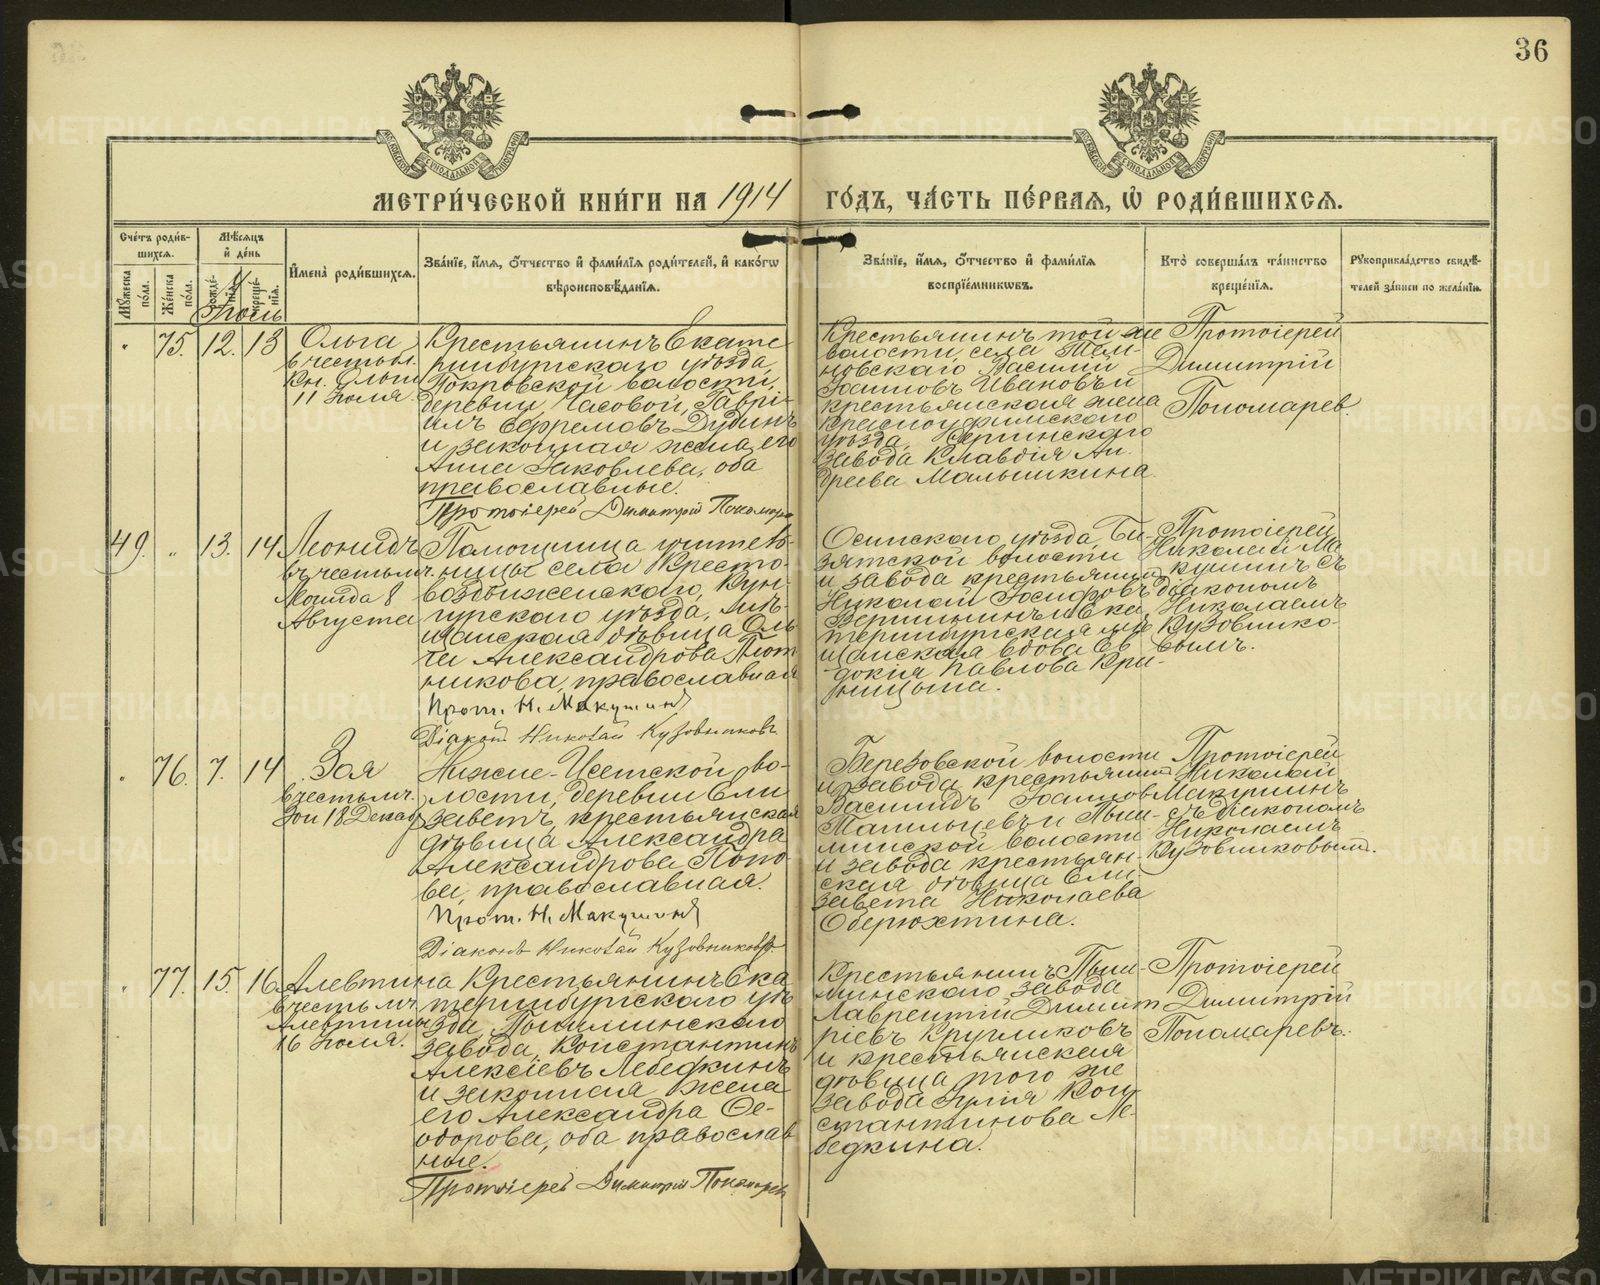 36
МЕТРИ́ЧЕСКОЙ КНИ́ГИ НА 1914 ГО́ДЪ, ЧА́СТЬ ПЕ́РВАЯ, Ѡ РОДИ́ВШИХСЯ.
Сче́тъ роди́в-
шихся.
Мѣ́сяцъ
и҆ де́нь
Мꙋ́жеска
по́ла.
Же́нска
по́ла.
рожде́-
нїѧ.
креще́-
нїѧ.
Іюль
И҆мена̀ роди́вшихся.
Зва́нїе, и҆́мя, ѻ҆́тчество и҆ фами́лїя роди́телей, и҆ како́гѡ
вѣроисповѣ́данїя.
Зва́нїе, и҆́мя, ѻ҆́тчество и҆ фами́лїя
воспрїе́мникѡвъ.
Кто̀ соверша́лъ та́инство
креще́нїя.
Рꙋкоприкла́дство свидѣ́-
телей за́писи по жела́нїю.
75. 12. 13
Ольга
в честь м.
Кн. Ольги
11 Іюля.
Крестьянинъ Екате
ринбургскаго уѣзда,
Покровской волости,
деревни Часовой, Гаврі-
илъ Ефремовъ Дудинъ
и законная жена его
Анна Яковлева, оба
православные.
Протоіерей Димитрій Пономаре
Крестьянинъ той же
волости, села Тем-
новскаго Василій
Іоанновъ Ивановъ и
крестьянская жена
Красноуфимскаго
уѣзда Сергинскаго
завода Клавдія Ан-
дреева Малышкина.
Протоіерей
Димитрій
Пономарев.
49. 13. 14
Леонидъ
въ честь м.ч.
Леонида 8
Августа
Помощница учитель-
ницы села Кресто-
воздвиженскаго, Кун-
гурскаго уѣзда, мѣ-
щанская дѣвица Оль
га Александрова Плот
никова, православная
Прот. Н. Макушинъ
Діакон Николай Кузовниковъ
Осинскаго уѣзда, Би-
зятской волости
и завода крестьянинъ
Николай Іосифовъ
Вершининъ и Ека
теринбургская мѣ
щанская вдова Ев
докія Павлова Кри-
ницына.
Протоіерей
Николай Ма
кушинъ съ
діакономъ
Николаемъ
Кузовнико-
вымъ.
76. 7. 14
Зоя
в честь м.ч.
Зои 18 Декаб
Нижне-Исетской во-
лости, деревни Ели
заветъ, крестьянская
дѣвица Александра
Александрова Попо-
ва, православная.
Прот. Н. Макушинъ
Діаконъ Николай Кузовниковъ.
Березовской волости
и завода крестьянинъ
Василидъ Іоаннов
Матильцевъ и Пыш-
минской волости
и завода крестьян-
ская дѣвица Ели-
завета Николаева
Оберюхтина.
Протоіерей
Николай
Макушинъ
съ діакономъ
Николаемъ
Кузовниковымъ.
77. 15. 16
Алевтина
в честь м.ч.
Алевтины
16 Іюля.
Крестьянинъ Ека
теринбургскаго уѣ
зда, Пышминскаго
завода, Константинъ
Алексіевъ Лебедкинъ
и законная жена
его Александра Ѳе-
одорова, оба православ
ные.
Протоіерей Димитрій Пономарев
Крестьянинъ Пыш-
минскаго завода
Лаврентій Димит
ріевъ Кругликовъ
и крестьянская
дѣвица того же
завода Юлія Кон
стантинова Ле-
бедкина.
Протоіерей
Димитрій
Пономаревъ.
METRIKI.GASO-URAL.RU